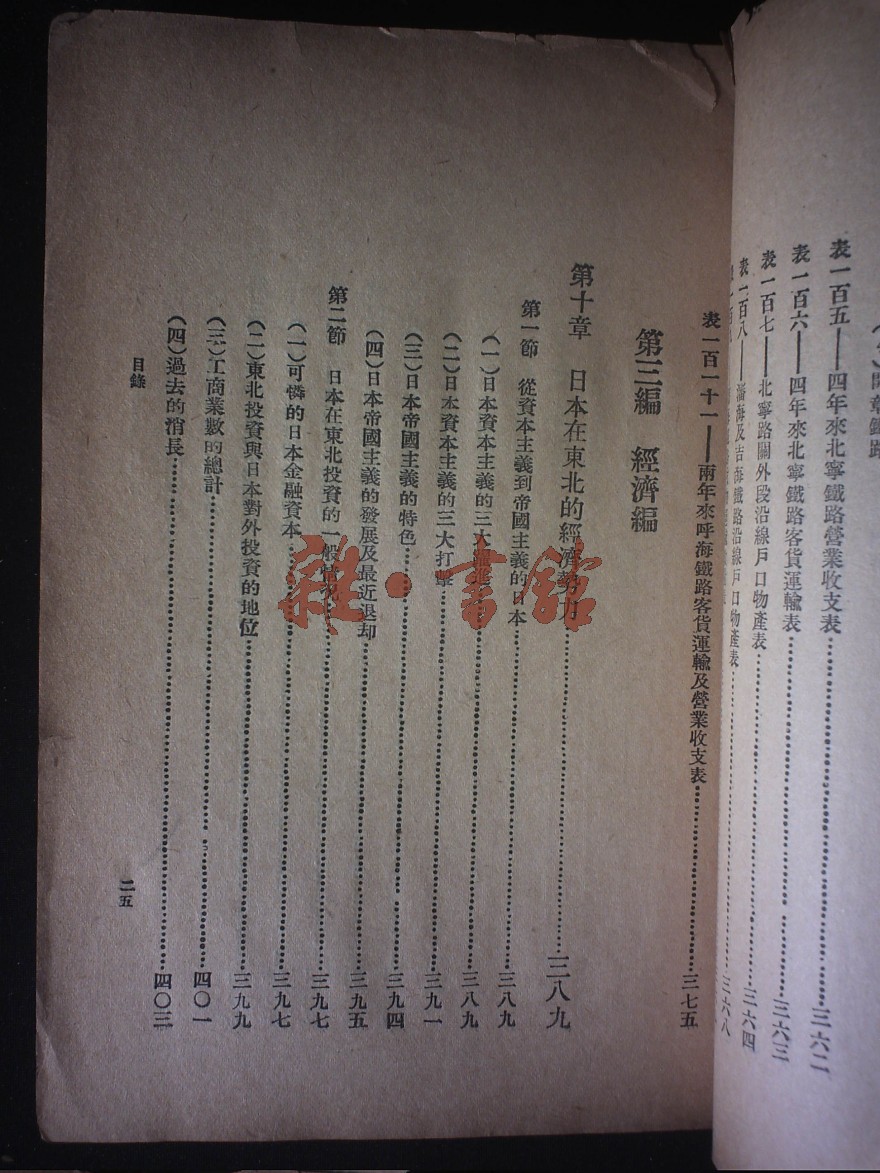 表一百五——四年來北寧鐵路營業收支表……三六二
表一百六——四年來北寧鐵路客貨運輸表……三六三
表一百七——北寧路關外段沿線戶口物產表……三六四
表一百八——瀋海及吉海鐵路沿線戶口物產表……三六八
表一百一十一——兩年來呼海鐵路客貨運輸及營業收支表……三七五
第三編 經濟編
第十章 日本在東北的經濟勢力……三八九
第一節 從資本主義到帝國主義的日本……三八九
(一)日本資本主義的三大躍進……三八九
(二)日本資本主義的三大打擊……三九一
(三)日本帝國主義的特色……三九四
(四)日本帝國主義的發展及最近退却……三九五
第二節 日本在東北投資的一般情況……三九七
(一)可憐的日本金融資本……三九七
(二)東北投資與日本對外投資的地位……三九九
(三)工商業數的總計……四〇一
(四)過去的消長……四〇三
目錄
二五
雜·書館